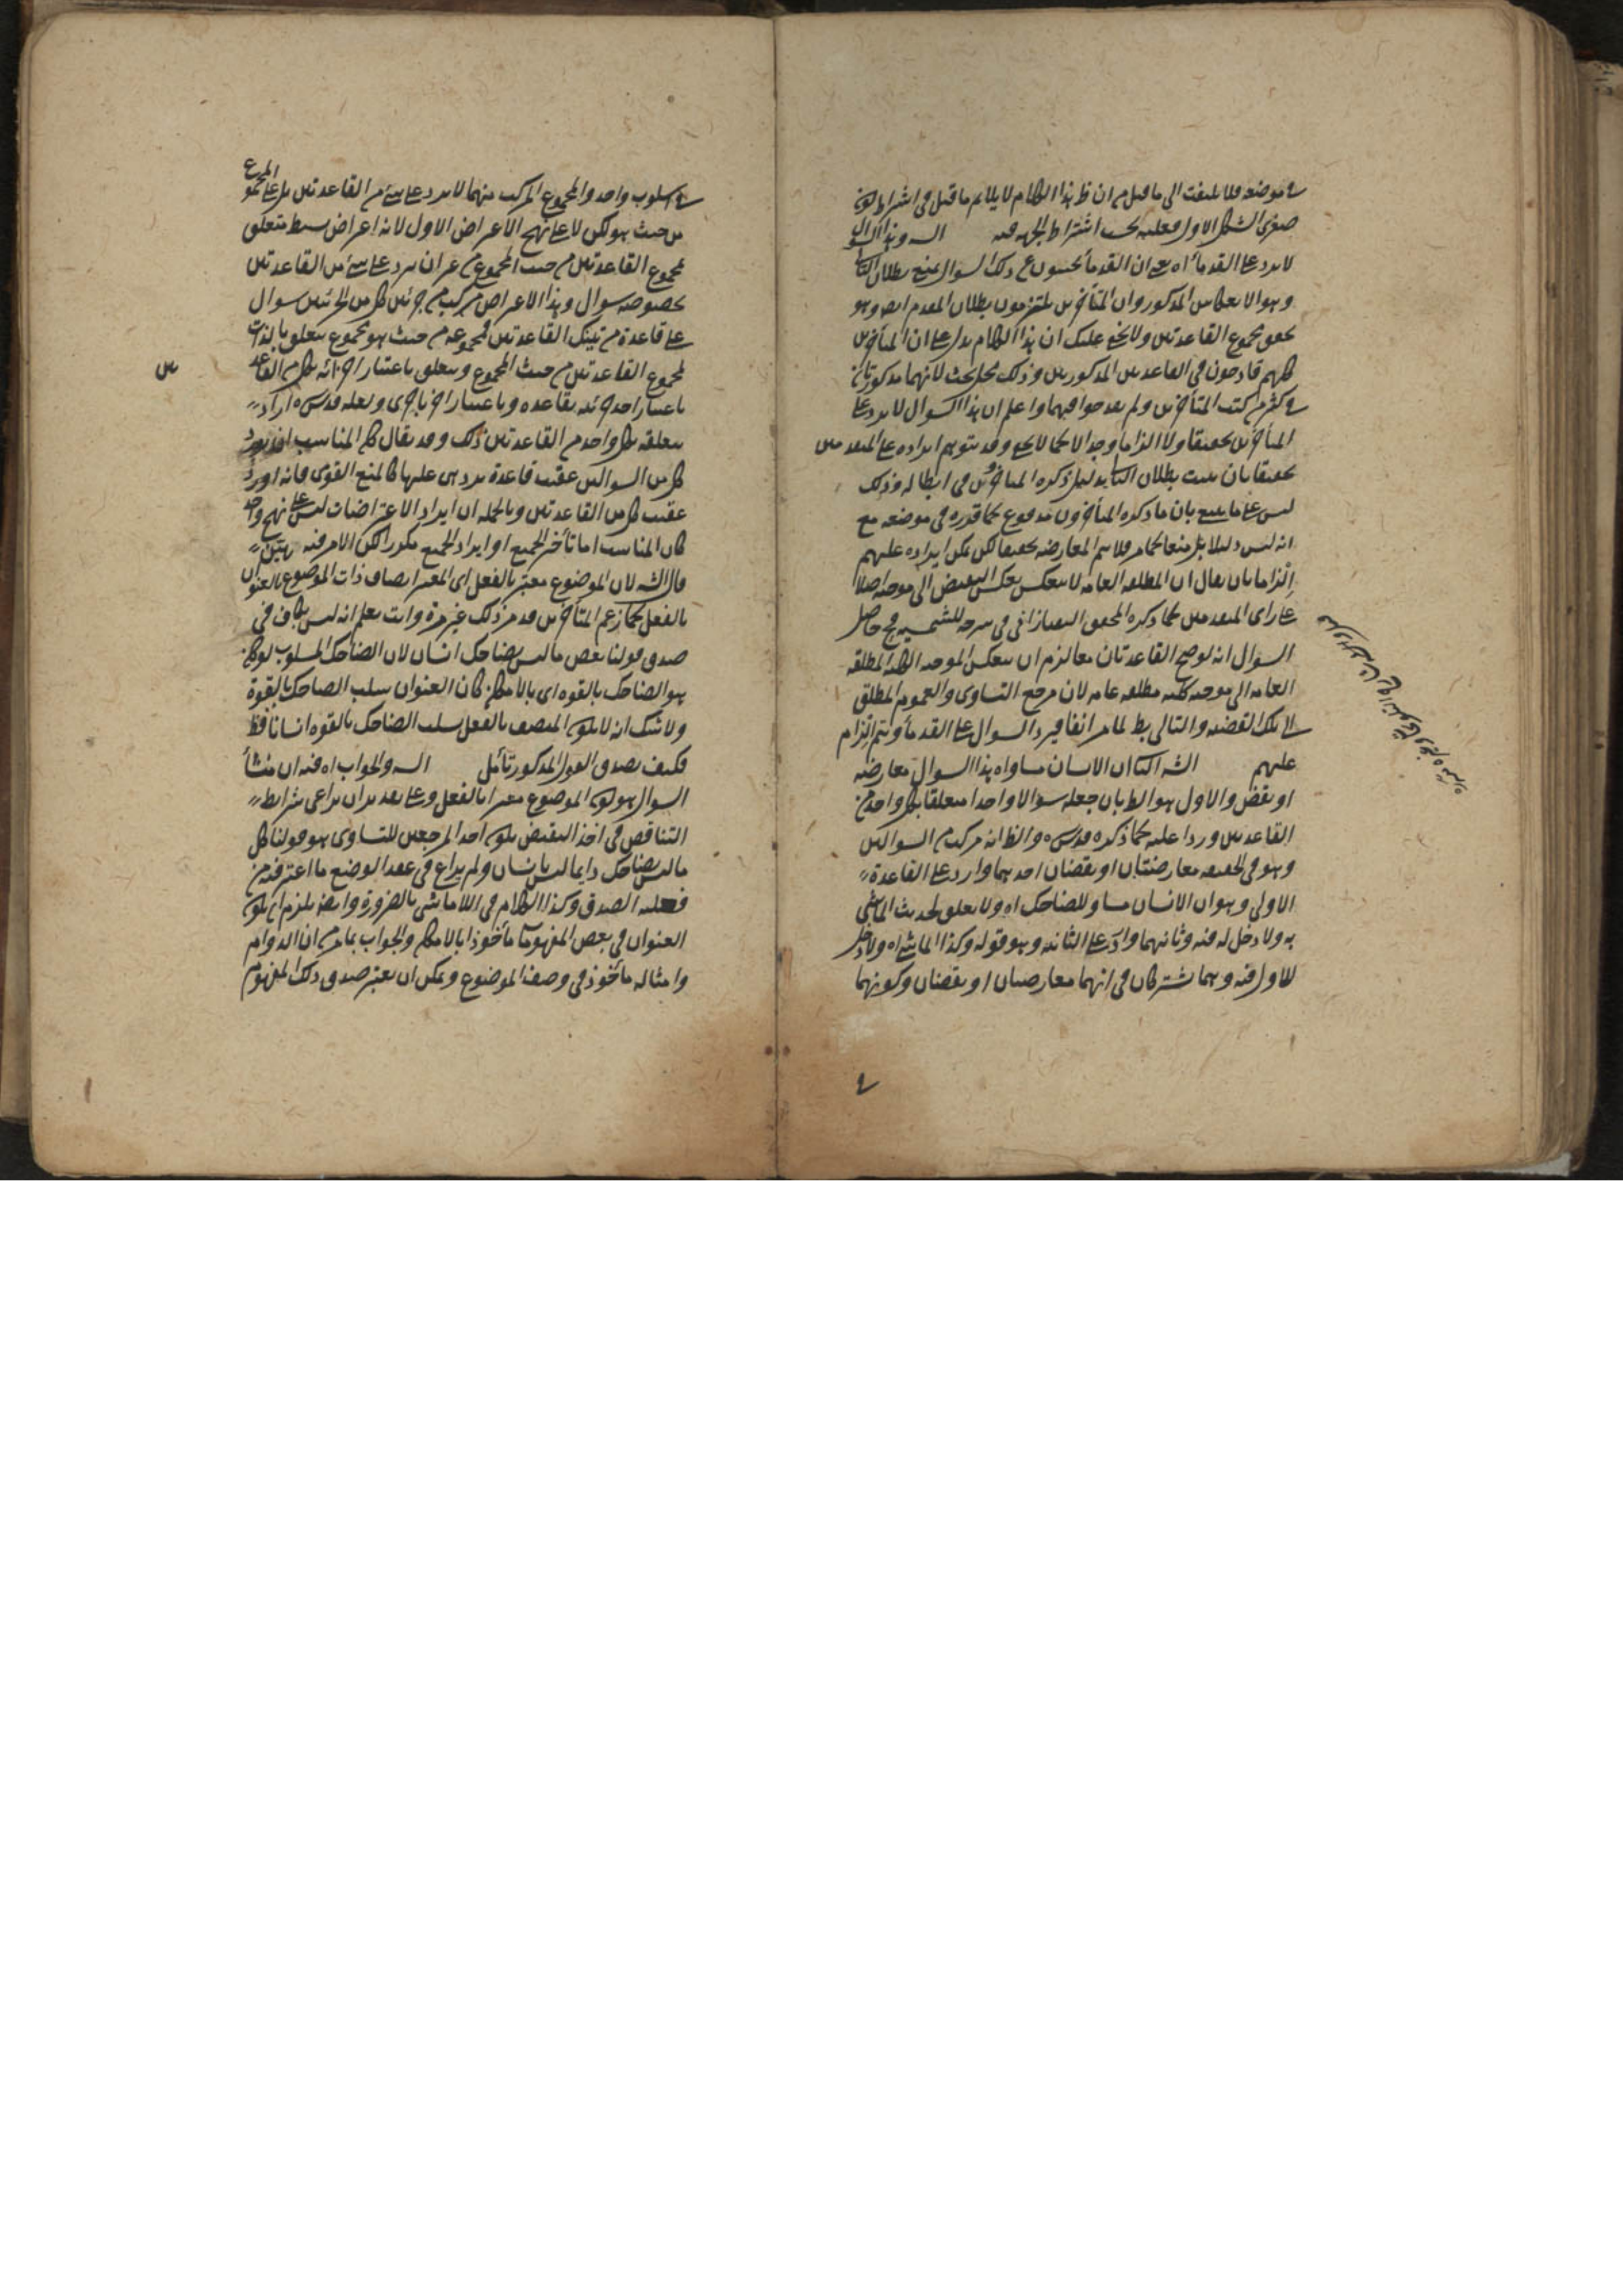 في موضعه فلا يلتفت الى ما قيل من ان ظ هذا الكلام لا يلايم ما قيل في اشتراط كون
صغرى الشكل الاول فعليه بحسب اشتراط الجهه فيه السه وهذا السوال
لا يرد على القدماء اه يعني ان القدماء يجيبون عن ذلك السوال بمنع بطلان التالي
وهو الانعكاس المذكور وان المتأخرين يلتزمون بطلان المقدم ايضا وهو
تحقق مجموع القاعدتين ولا يخفى عليك ان هذا الكلام يدل على ان المتأخرين
كلهم قادحون في القاعدتين المذكورتين وذلك محل بحث لانهما مذكورتان
في كثير من كتب المتأخرين ولم يقدحوا فيهما واعلم ان هذا السوال لا يرد على
المتأخرين تحقيقا ولا الزاما وجدالا كما لا يخفى وقد يتوهم ايراده على المتقدمين
تحقيقا بان يثبت بطلان التالي بدليل ذكره المتأخرون في ابطاله وذلك
ليس على ما ينبغي بان ما ذكره المتأخرون مدفوع كما قدره في موضعه مع
انه ليس دليلا بل منعا كما مر فلا يتم المعارضه تحقيقا لكن يمكن ايراده عليهم
الزاما بان يقال ان المطلقه العامه لا ينعكس بعكس النقيض الى موجبه اصلا
على راى المتقدمين كما ذكره المحقق التفتازاني في شرحه للشمسيه فح حاصل
السوال انه لو صح القاعدتان معا لزم ان ينعكس الموجبه الكليه المطلقه
العامه الى موجبه كليه مطلقه عامه لان مرجع التساوي والعموم المطلق
الى تلك القضيه والتالي بط لما مر انفا فيرد السوال على القدماء ويتم الزام
عليهم الشه الثاني ان الانسان مساو اه هذا السوال معارضه
او نقض والاول هو الظ بان جعله سوالا واحدا متعلقا بكل واحد من
القاعدتين وردا عليه كما ذكره قدس سره والظ انه مركب من السوالين
وهو في الحقيقه معارضتان او نقضان احدهما وارد على القاعدة
الاولى وهو ان الانسان مساو للضاحك اه ولا يعلق لحديث الماشي
به ولا دخل له فيه وثانيهما وارد على الثانيه وهو قوله وكذا الماشي اه ولا دخل
للاول فيه وهما مشتركان في انهما معارضتان او نقضان وكونهما
في اسلوب واحد والمجموع المركب منهما لا يرد على شيء من القاعدتين بل على المجموع
من حيث هو لكن لا على نهج الاعراض الاول لانه اعراض بسيط متعلق
بمجموع القاعدتين من حيث المجموع من غير ان يرد على شيء من القاعدتين
بخصوصه سوال وهذا الاعراض مركب من جزئين كل من الجزئين سوال
على قاعدة من تينك القاعدتين فمجموعه من حيث هو مجموع يتعلق بالذات
لمجموع القاعدتين من حيث المجموع ويتعلق باعتبار اجزائه بكل من القاعد
باعتبار احد جزئيه بقاعده وباعتبار اخر باخرى ولعله قدس سره اراد
بتعلقه بكل واحد من القاعدتين ذلك وقد يقال كان المناسب ان يورد
كل من السوالين عقيب قاعدة يرد هي عليها كالمنع القوى فانه اورد
عقيب كل من القاعدتين وبالجمله ان ايراد الاعتراضات ليس على نهج واحد
كان المناسب اما تأخير الجميع او ايراد الجميع مكررا لكن الامر فيه هين
قال الشه لان الموضوع معتبر بالفعل اى المعتبر اتصاف ذات الموضوع بالعنوان
بالفعل كما زعم المتأخرين قد مر ذلك غير مرة وانت تعلم انه ليس بكاف في
صدق قولنا بعض ما ليس بضاحك انسان لان الضاحك المسلوب لو كان
هو الضاحك بالقوه اى بالامكان كان العنوان سلب الضاحك بالقوة
ولا شك انه لا يكون المتصف بالفعل بسلب الضاحك بالقوه انسانا قط
فكيف يصدق القول المذكور تأمل السه والجواب اه فيه ان منشأ
السوال هو كون الموضوع معتبرا بالفعل وعلى تقدير ان يراعى شرايط
التناقض في اخذ النقيض يكون احد المرجعين للتساوى هو قولنا كل
ما ليس بضاحك دايما ليس بانسان ولم يراع في عقد الوضع ما اعترف به من
فعليه الصدق وكذا الكلام في اللاماشي بالضرورة وايضا يلزم ان يكون
العنوان في بعض المفهومات مأخوذا بالامكان والجواب بما مر من ان الدوام
وامثاله مأخوذ في وصف الموضوع ويمكن ان يعتبر صدق ذلك المفهوم